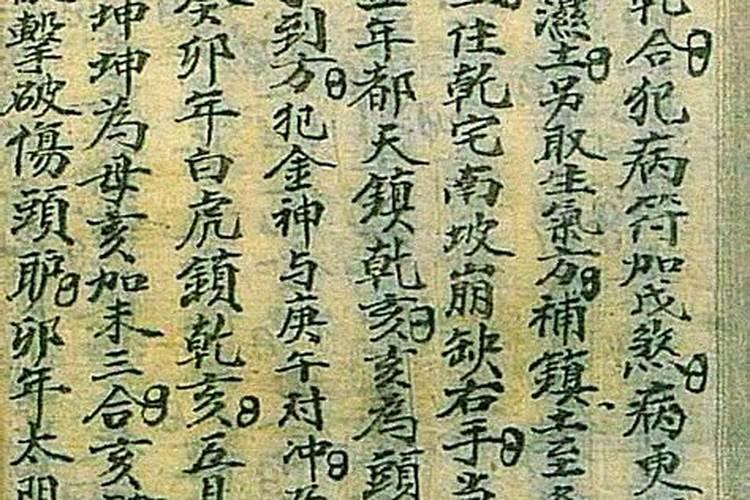 合犯病符加戊煞病更
濕土另取生氣方補鎮土至
住乾宅南坡崩缺右手当
年都天鎮乾亥亥為頭
到方犯金神与庚午对冲
癸卯年白虎鎖乾亥五月
坤坤為母亥加未三合亥
擊破傷頭胪卯年太阳